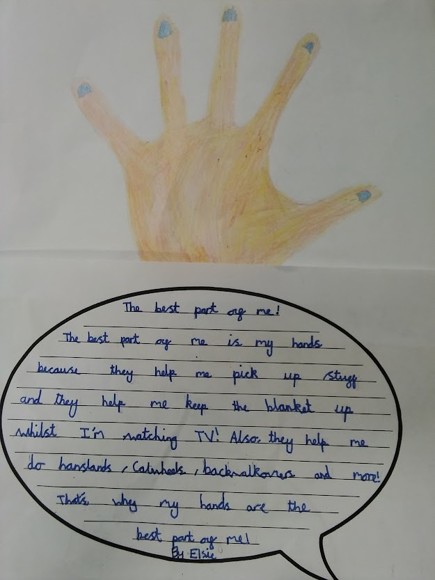 The best part of me!
The best part of me is my hands
because they help me pick up stuff
and they help me keep the blanket up
whilst I'm watching TV! Also, they help me
do hanstands, Catwheels, backwalkovers and more!
That's why my hands are the
best part of me!
By Elsie